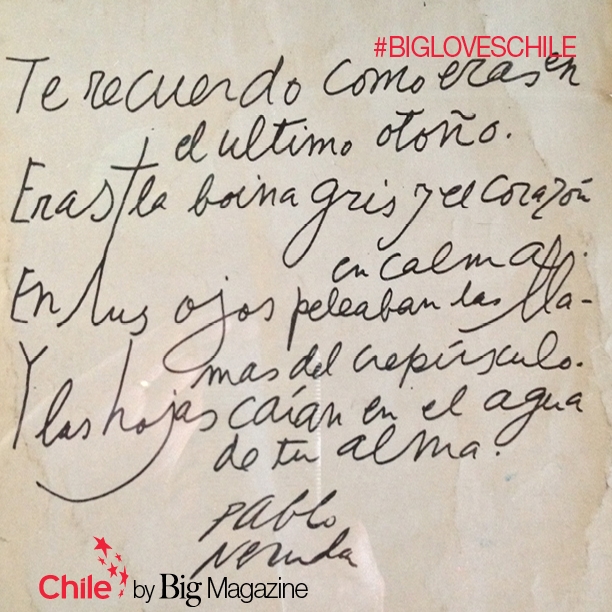 #BIGLOVESCHILE
Te recuerdo como eras en
el ultimo otoño.
Eras la boina gris y el corazón
en calma.
En tus ojos peleaban las lla-
mas del crepúsculo.
Y las hojas caían en el agua
de tu alma.
Pablo
Neruda
Chile by Big Magazine